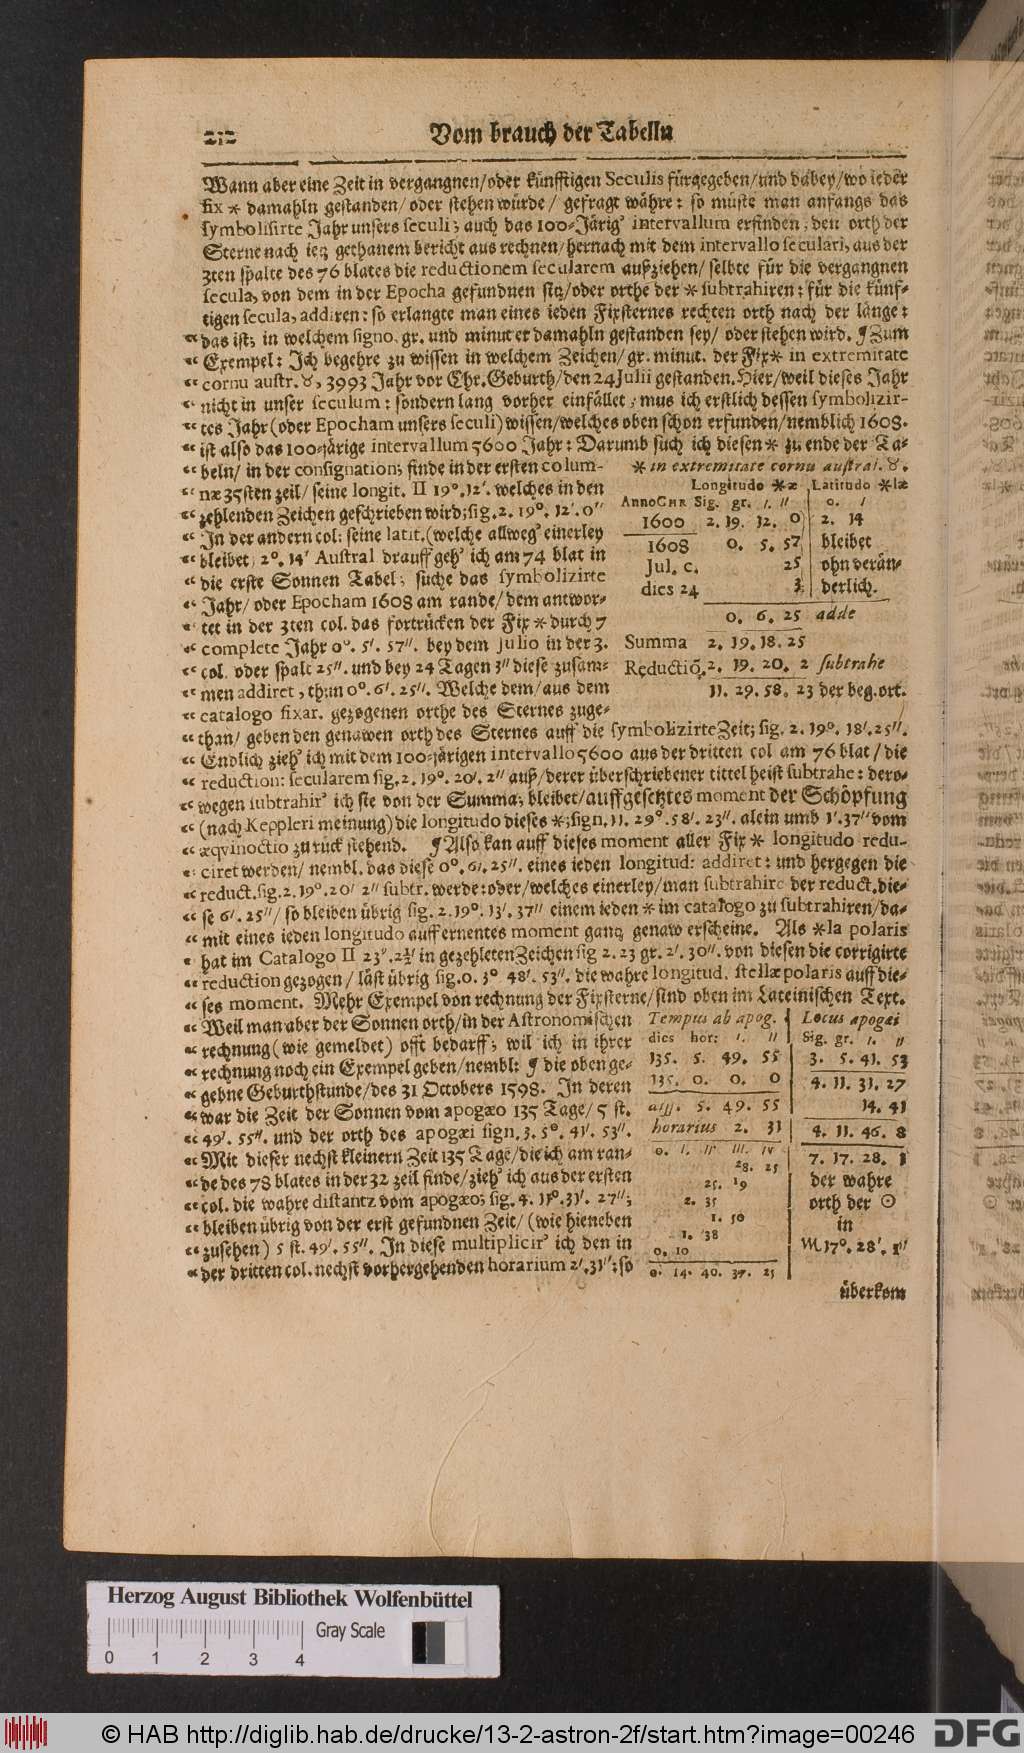 212 Vom brauch der Tabelln
Wann aber eine Zeit in vergangnen/oder künfftigen Seculis fürgegeben/und dabey/wo ieder
fix * damahln gestanden/oder stehen würde/ gefragt währe: so müste man anfangs das
symbolisirte Jahr unsers seculi; auch das 100-Järig' intervallum erfinden, den orth der
Sterne nach ietz gethanem bericht aus rechnen/hernach mit dem intervallo seculari, aus der
3ten spalte des 76 blates die reductionem secularem außziehen/ selbte für die vergangnen
secula, von dem in der Epocha gefundnen sitz/oder orthe der * subtrahiren: für die künf-
tigen secula, addiren: so erlangte man eines ieden Fixsternes rechten orth nach der länge:
das ist; in welchem signo. gr. und minut er damahln gestanden sey/ oder stehen wird. ¶ Zum
Exempel: Ich begehre zu wissen in welchem Zeichen/gr. minut. der Fix* in extremitate
cornu austr. ♉, 3993 Jahr vor Chr. Geburth/den 24 Julii gestanden. Hier/weil dieses Jahr
nicht in unser seculum: sondern lang vorher einfället; mus ich erstlich dessen symbolizir-
tes Jahr (oder Epocham unsers seculi) wissen/welches oben schon erfunden/nemblich 1608.
ist also das 100-järige intervallum 5600 Jahr: Darumb such ich diesen * zu ende der Ta-
beln/ in der consignation; finde in der ersten colum-
næ 35sten zeil/ seine longit. II 19°. 12'. welches in den
zehlenden Zeichen geschrieben wird; sig. 2. 19°. 12'. 0''
In der andern col: seine latit. (welche allweg' einerley
bleibet) 2°. 14' Austral drauff geh' ich am 74 blat in
die erste Sonnen Tabel; suche das symbolizirte
Jahr/ oder Epocham 1608 am rande/ dem antwor-
tet in der 3ten col. das fortrücken der Fix * durch 7
complete Jahr 0°. 5'. 57''. bey dem Julio in der 3.
col. oder spalt 25''. und bey 24 Tagen 3'' diese zusam-
men addiret, thun 0°. 6'. 25''. Welche dem/aus dem
catalogo fixar. gezogenen orthe des Sternes zuge-
* in extremitate cornu austral. ♉.
Longitudo *æ | Latitudo *læ
Anno Chr Sig. gr. ı. ıı | 0. ı
1600 2. 19. 12. 0 | 2. 14
1608 0. 5. 57 | bleibet
Jul. c. 25 | ohn verän-
dies 24 3 | derlich.
0. 6. 25 adde
Summa 2. 19. 18. 25
Reductiō. 2. 19. 20. 2 subtrahe
11. 29. 58. 23 der beg. ort.
than/ geben den genawen orth des Sternes auff die symbolizirte Zeit; sig. 2. 19°. 18'. 25''.
Endlich zieh' ich mit dem 100-järigen intervallo 5600 aus der dritten col am 76 blat/ die
reduction: secularem sig. 2. 19°. 20'. 2'' auß/derer überschriebener tittel heist subtrahe: dero-
wegen subtrahir' ich sie von der Summa; bleibet/auffgesetztes moment der Schöpfung
(nach Keppleri meinung) die longitudo dieses *; sign. 11. 29°. 58'. 23''. alein umb 1'. 37'' vom
æqvinoctio zu rück stehend. ¶ Also kan auff dieses moment aller Fix * longitudo redu-
ciret werden/ nembl. das diese 0°. 6'. 25''. eines ieden longitud: addiret: und hergegen die
reduct. sig. 2. 19°. 20' 2'' subtr. werde: oder/welches einerley/man subtrahire der reduct. die-
se 6'. 25''/ so bleiben übrig sig. 2. 19°. 13'. 37'' einem ieden * im catalogo zu subtrahiren/da-
mit eines ieden longitudo auff ernentes moment gantz genaw erscheine. Als *la polaris
hat im Catalogo II 23°. 2½' in gezehleten Zeichen sig 2. 23 gr. 2'. 30''. von diesen die corrigirte
reduction gezogen/ läst übrig sig. 0. 3° 48'. 53''. die wahre longitud. stellæ polaris auff die-
ses moment. Mehr Exempel von rechnung der Fixsterne/sind oben im Lateinischen Text.
Weil man aber der Sonnen orth/in der Astronomischen
rechnung (wie gemeldet) offt bedarff; wil ich in ihrer
rechnung noch ein Exempel geben/nembl: ¶ die oben ge-
gebne Geburthstunde/des 31 Octobers 1598. In deren
war die Zeit der Sonnen vom apogæo 135 Tage/ 5 st.
49'. 55''. und der orth des apogæi sign. 3. 5°. 41'. 53''.
Mit dieser nechst kleinern Zeit 135 Tage/die ich am ran-
de des 78 blates in der 32 zeil finde/zieh' ich aus der ersten
col. die wahre distantz vom apogæo; sig. 4. 11°. 31'. 27'';
bleiben übrig von der erst gefundnen Zeit/ (wie hieneben
zusehen) 5 st. 49'. 55''. In diese multiplicir' ich den in
der dritten col. nechst vorhergehenden horarium 2'. 31'': so
Tempus ab apog. | Locus apogæi
dies hor: ı. ıı | Sig. gr. ı. ıı
135. 5. 49. 55 | 3. 5. 41. 53
135. 0. 0. 0 | 4. 11. 31. 27
aff. 5. 49. 55 | 14. 41
horarius 2. 31 | 4. 11. 46. 8
0. ı. ıı ııı. ıv | 7. 17. 28. 1
28. 25 | der wahre
25. 19
2. 35 | orth der ☉
1. 50 | in
1. 38
0. 10 | ♏ 17°. 28'. 1''
0. 14. 40. 37. 25
überkom
Herzog August Bibliothek Wolfenbüttel
Gray Scale
0 1 2 3 4
© HAB http://diglib.hab.de/drucke/13-2-astron-2f/start.htm?image=00246 DFG